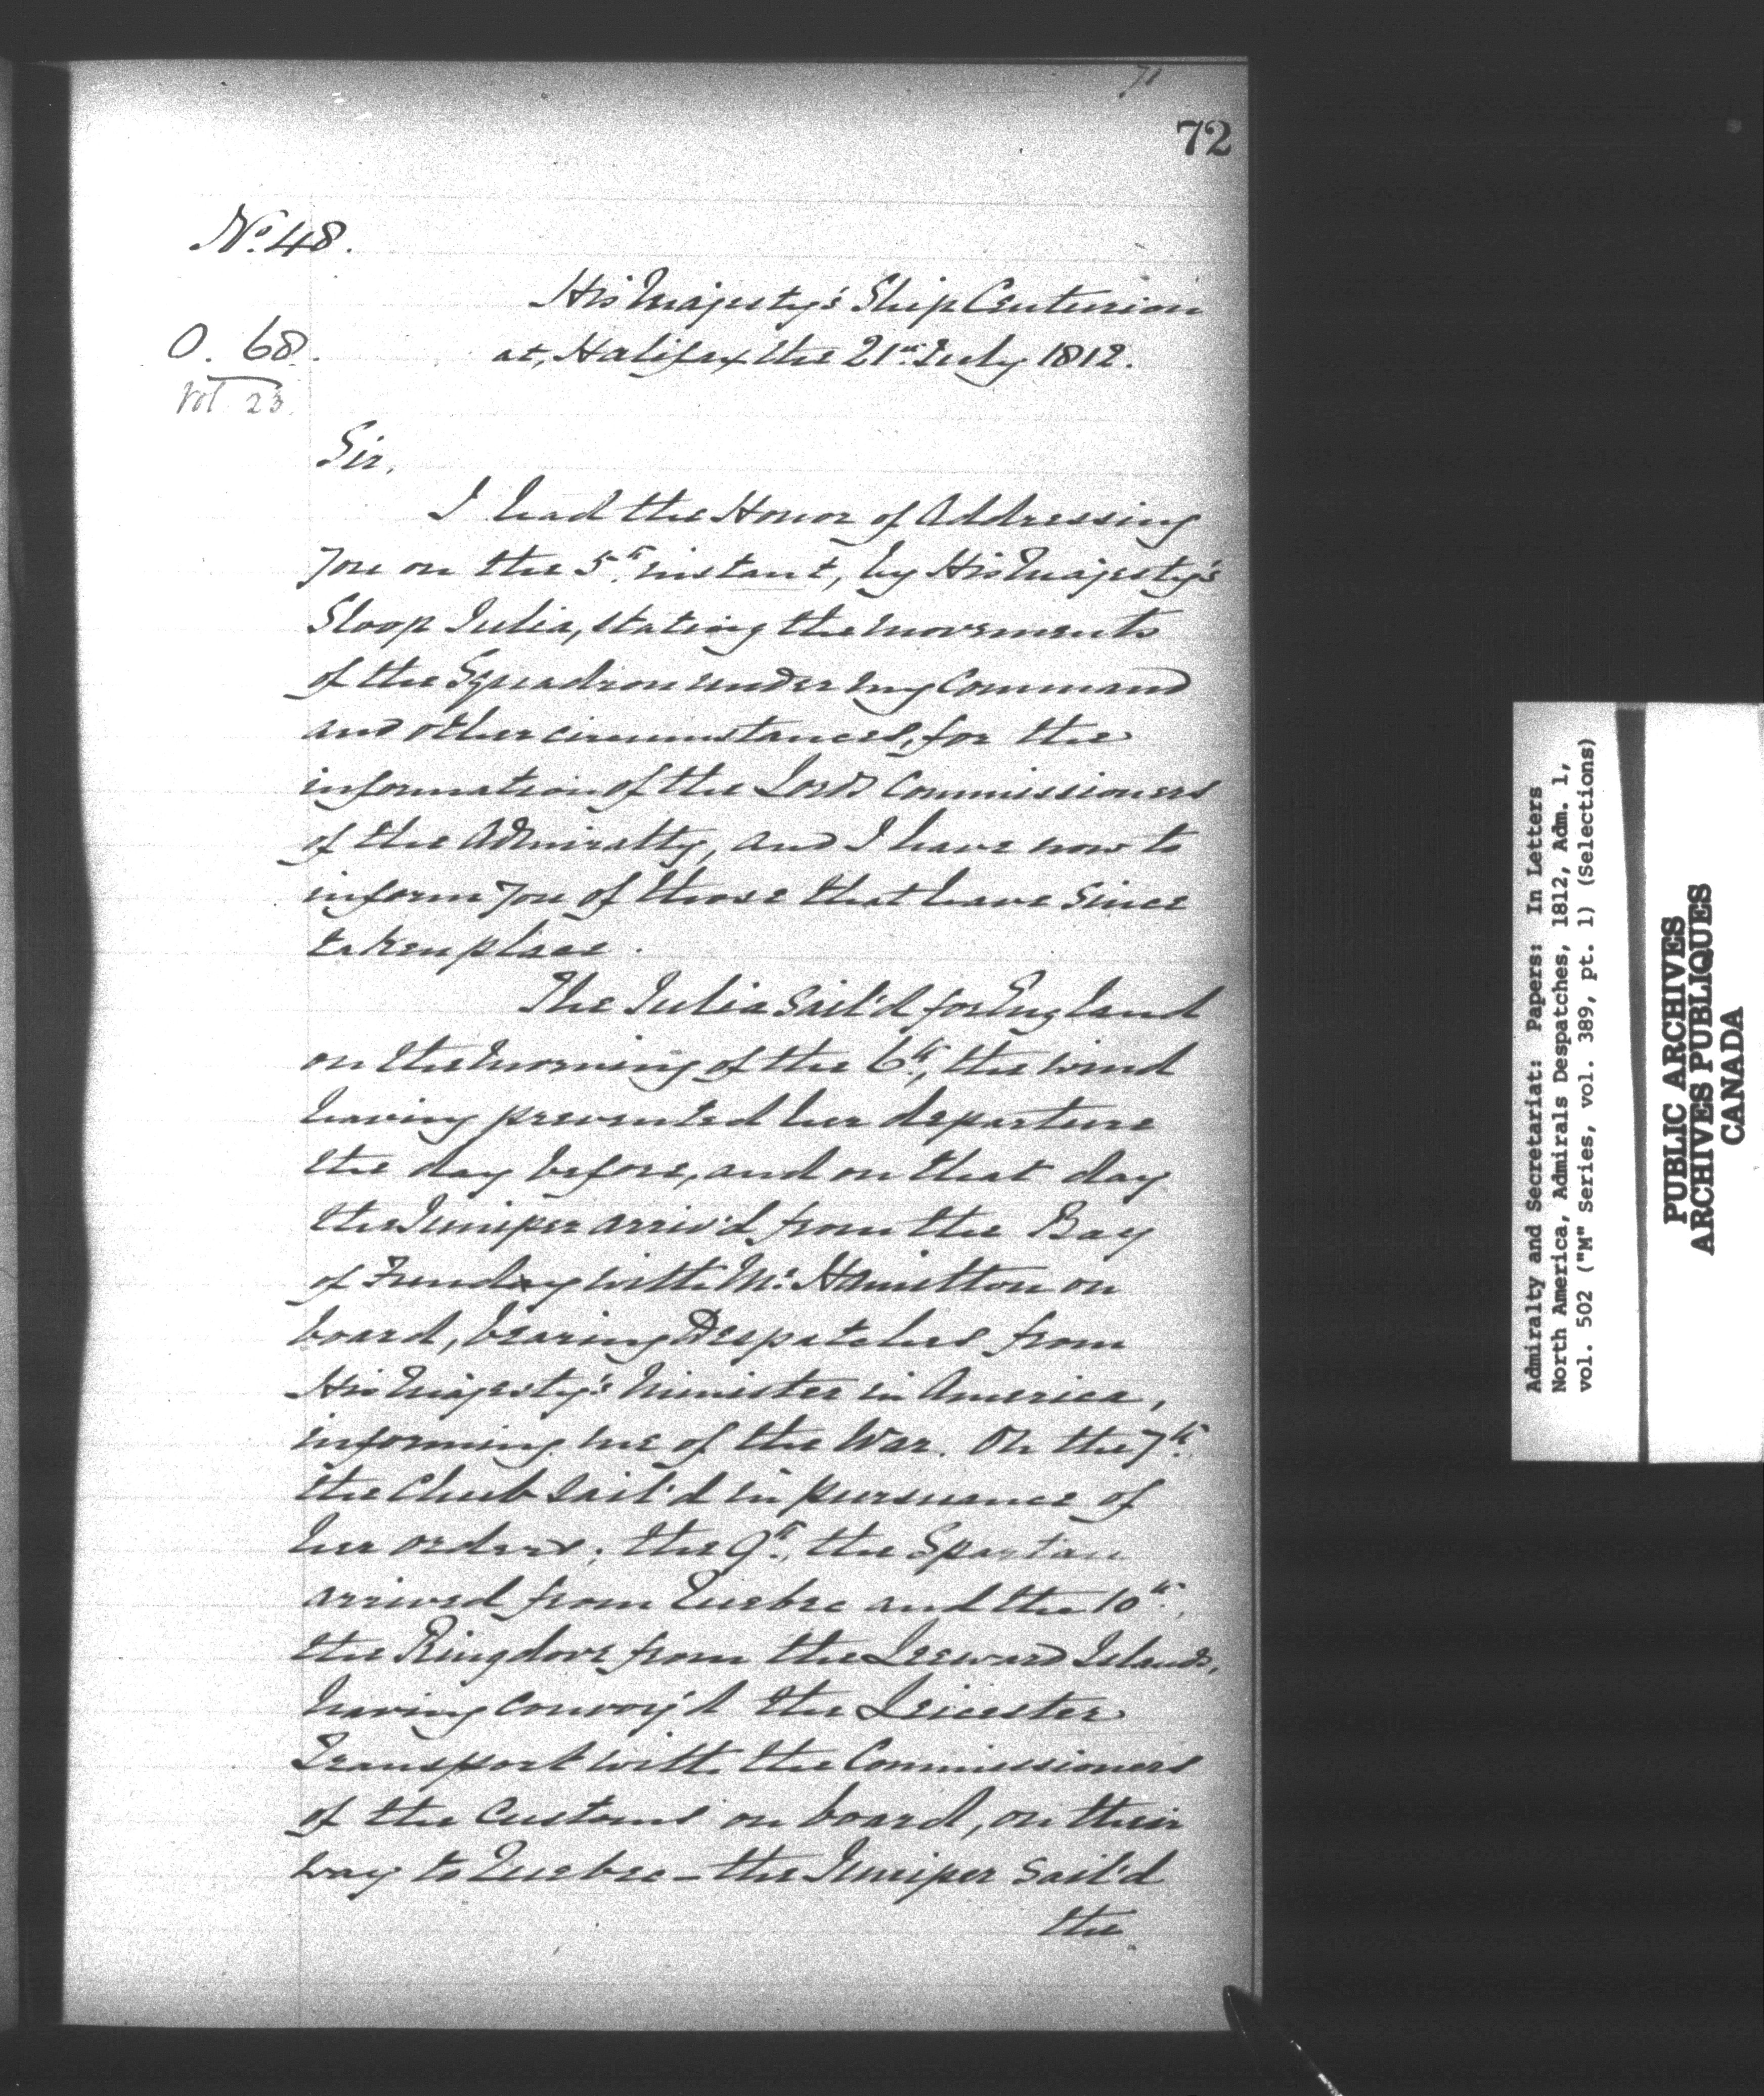 71
72
No. 48.
His Majesty's Ship Centurion
at, Halifax the 21st July 1812.
O. 68.
Vol. 23.
Sir,
I had the Honor of Addressing
You on the 5th. instant, by His Majesty's
Sloop Julia, stating the movements
of the Squadron under my Command
and other circumstances, for the
information of the Lords Commissioners
of the Admiralty, and I have now to
inform you of those that have since
taken place.
The Julia sail'd for England
on the morning of the 6th., the wind
having prevented her departure
the day before, and on that day
the Juniper arriv'd from the Bay
of Fundy with Mr. Hamilton on
board, bearing Despatches from
His Majesty's Minister in America,
informing me of the War. On the 7th.
the Chub sail'd in pursuance of
her orders; the 9th., the Spartan
arrived from Quebec and the 10th.,
the Ringdove from the Leeward Islands,
having convoy'd the Leicester
Transport with the Commissioners
of the Customs on board, on their
way to Quebec - the Juniper sail'd
the
Admiralty and Secretariat: Papers: In Letters
North America, Admirals Despatches, 1812, Adm. 1,
vol. 502 ("M" Series, vol. 389, pt. 1) (Selections)
PUBLIC ARCHIVES
ARCHIVES PUBLIQUES
CANADA